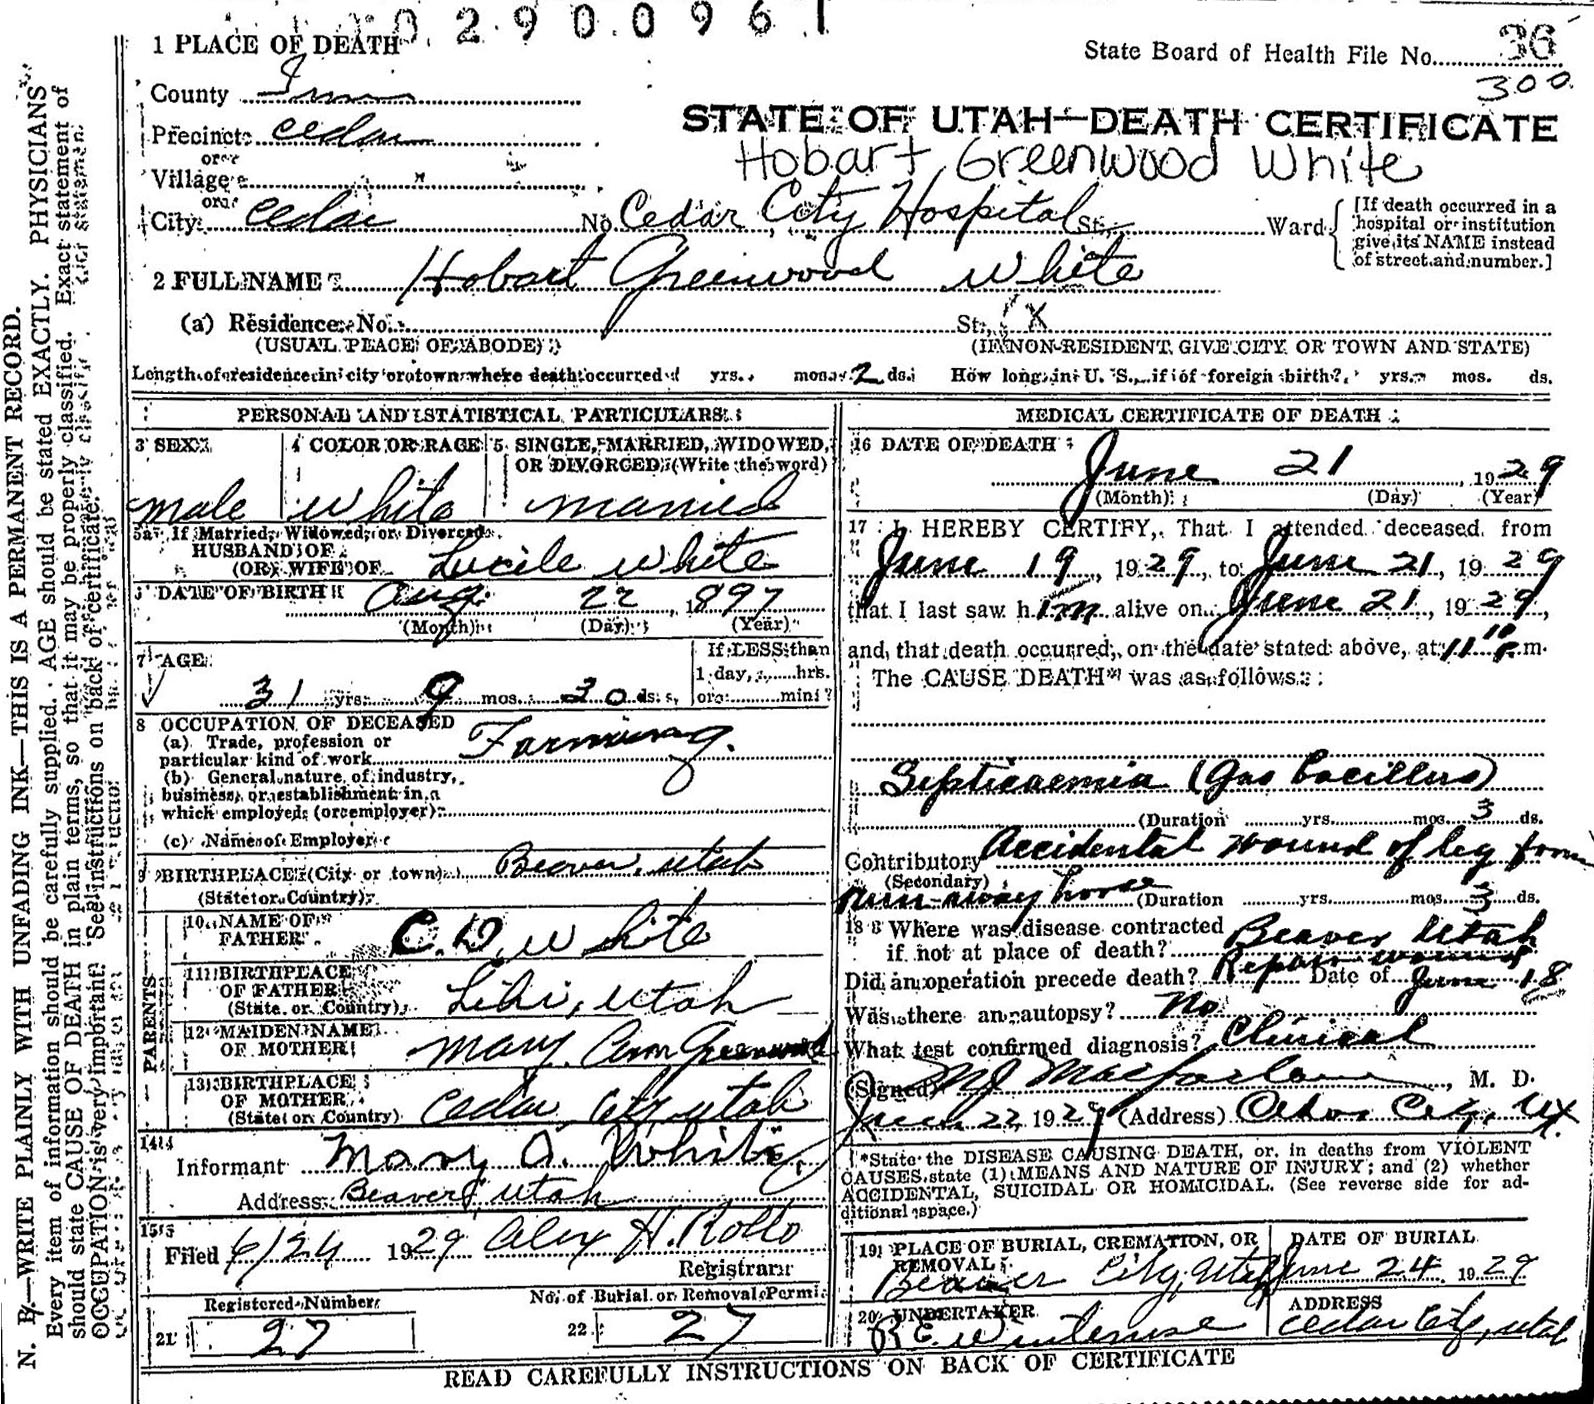 0290096 1
1 PLACE OF DEATH
State Board of Health File No. 36
300
County Iron
STATE OF UTAH—DEATH CERTIFICATE
Precinct cedar
or
Hobart Greenwood White
Village
or
City cedar No. Cedar City Hospital St., Ward
[If death occurred in a
hospital or institution
give its NAME instead
of street and number.]
2 FULL NAME Hobart Greenwood White
(a) Residence. No. St. X
(USUAL PLACE OF ABODE) (IF NON-RESIDENT, GIVE CITY OR TOWN AND STATE)
Length of residence in city or town where death occurred yrs. mos. 2 ds. How long in U. S., if of foreign birth? yrs. mos. ds.
PERSONAL AND STATISTICAL PARTICULARS
3 SEX 4 COLOR OR RACE 5 SINGLE, MARRIED, WIDOWED,
OR DIVORCED (Write the word)
male white married
5a If Married, Widowed, or Divorced
HUSBAND OF
(OR) WIFE OF Lucile White
DATE OF BIRTH Aug. 22, 1897
(Month) (Day) (Year)
7 AGE If LESS than
1 day, hrs.
31 yrs. 9 mos. 30 ds. or min?
8 OCCUPATION OF DECEASED
(a) Trade, profession or
particular kind of work Farming.
(b) General nature of industry,
business, or establishment in
which employed (or employer)
(c) Name of Employer
9 BIRTHPLACE (City or town) Beaver, Utah
(State or Country)
PARENTS
10 NAME OF
FATHER C. D. White
11 BIRTHPLACE
OF FATHER
(State or Country) Lehi, Utah
12 MAIDEN NAME
OF MOTHER Mary Ann Greenwood
13 BIRTHPLACE
OF MOTHER
(State or Country) Cedar City, Utah
14
Informant Mary A. White
Address Beaver, Utah
15
Filed 6/24 1929 Alex H. Rollo
Registrar
Registered Number No. of Burial or Removal Permit
21 27 22 27
MEDICAL CERTIFICATE OF DEATH
16 DATE OF DEATH
June 21, 1929
(Month) (Day) (Year)
17 I HEREBY CERTIFY, That I attended deceased from
June 19, 1929, to June 21, 1929
that I last saw him alive on June 21, 1929,
and that death occurred, on the date stated above, at 11 10 P.m.
The CAUSE DEATH* was as follows:
Septicaemia (Gas bacillus)
(Duration yrs. mos. 3 ds.
Contributory Accidental wound of leg from
(Secondary)
run-away horse (Duration yrs. mos. 3 ds.
18 Where was disease contracted
if not at place of death? Beaver Utah
Did an operation precede death? Repair wound Date of June 18
Was there an autopsy? No
What test confirmed diagnosis? Clinical
(Signed) M J Macfarlane, M. D.
June 22, 1929 (Address) Cedar City, Ut.
*State the DISEASE CAUSING DEATH, or, in deaths from VIOLENT
CAUSES, state (1) MEANS AND NATURE OF INJURY; and (2) whether
ACCIDENTAL, SUICIDAL OR HOMICIDAL. (See reverse side for ad-
ditional space.)
19 PLACE OF BURIAL, CREMATION, OR
REMOVAL
Beaver City, Utah
DATE OF BURIAL
June 24 1929
20 UNDERTAKER
ADDRESS
Cedar City, Utah
READ CAREFULLY INSTRUCTIONS ON BACK OF CERTIFICATE
N. B.—WRITE PLAINLY WITH UNFADING INK—THIS IS A PERMANENT RECORD.
Every item of information should be carefully supplied. AGE should be stated EXACTLY. PHYSICIANS
should state CAUSE OF DEATH in plain terms, so that it may be properly classified. Exact statement of
OCCUPATION is very important. See instructions on back of certificate.